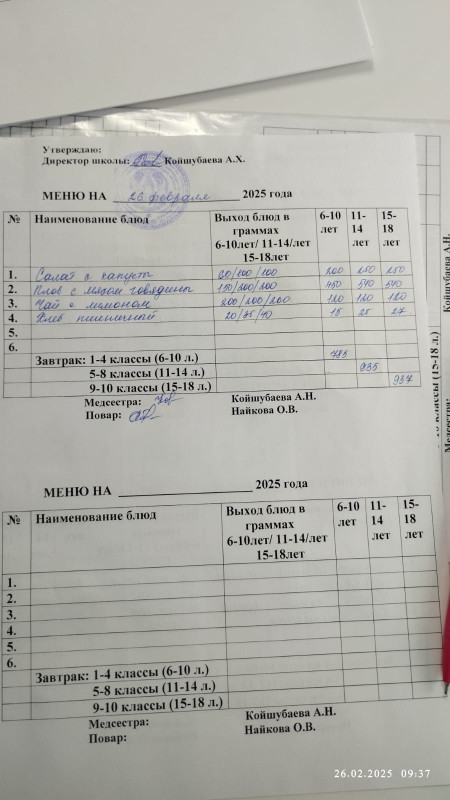 Утверждаю:
Директор школы: Койшубаева А.Х.
МЕНЮ НА 26 февраля 2025 года
№ Наименование блюд Выход блюд в граммах 6-10лет/ 11-14/лет 15-18лет 6-10 лет 11-14 лет 15-18 лет
1. Салат с капусты 60/100/100 200 250 250
2. Плов с мясом говядины 150/200/200 450 540 540
3. Чай с лимоном 200/200/200 120 120 120
4. Хлеб пшеничный 20/35/40 15 25 27
5.
6.
Завтрак: 1-4 классы (6-10 л.) 785
5-8 классы (11-14 л.) 935
9-10 классы (15-18 л.) 937
Медсестра: Койшубаева А.Н.
Повар: Найкова О.В.
МЕНЮ НА 2025 года
№ Наименование блюд Выход блюд в граммах 6-10лет/ 11-14/лет 15-18лет 6-10 лет 11-14 лет 15-18 лет
1.
2.
3.
4.
5.
6.
Завтрак: 1-4 классы (6-10 л.)
5-8 классы (11-14 л.)
9-10 классы (15-18 л.)
Медсестра: Койшубаева А.Н.
Повар: Найкова О.В.
Койшубаева А.Н.
классы (15-18 л.)
Медсестра:
Койшубаева А.Н.
26.02.2025 09:37